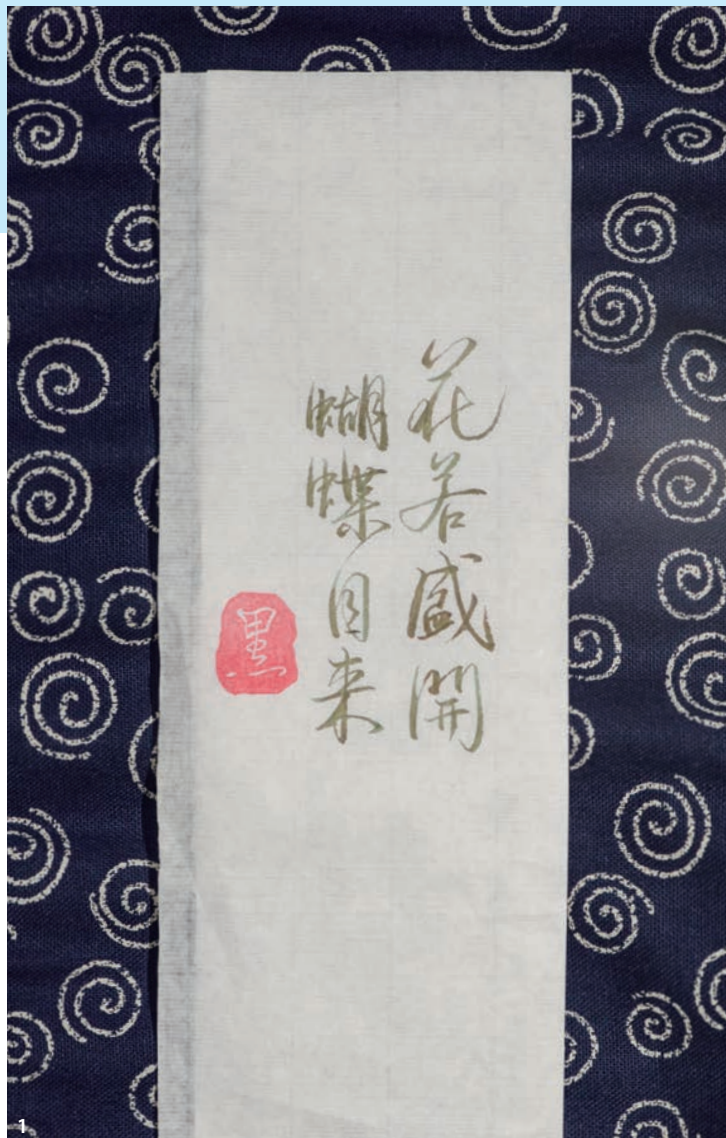 花若盛開
蝴蝶自来
黒
1